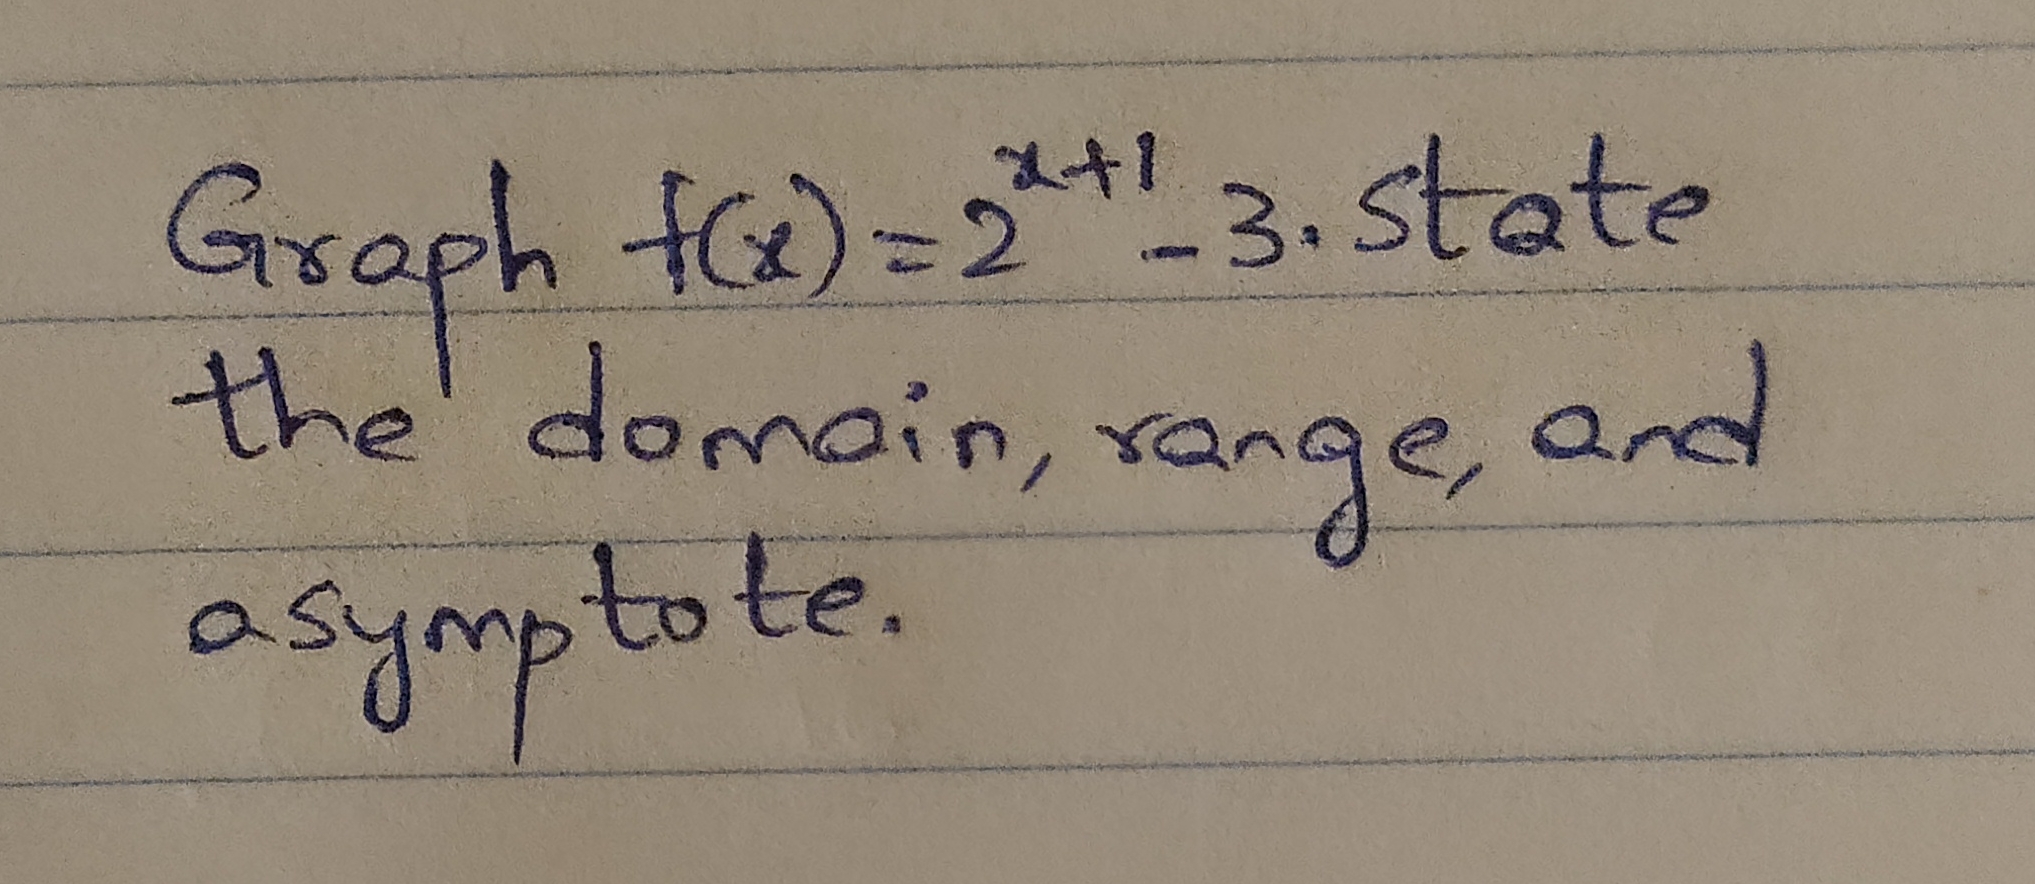 Graph f(x)=2^{x+1}-3. State
the domain, range, and
asymptote.